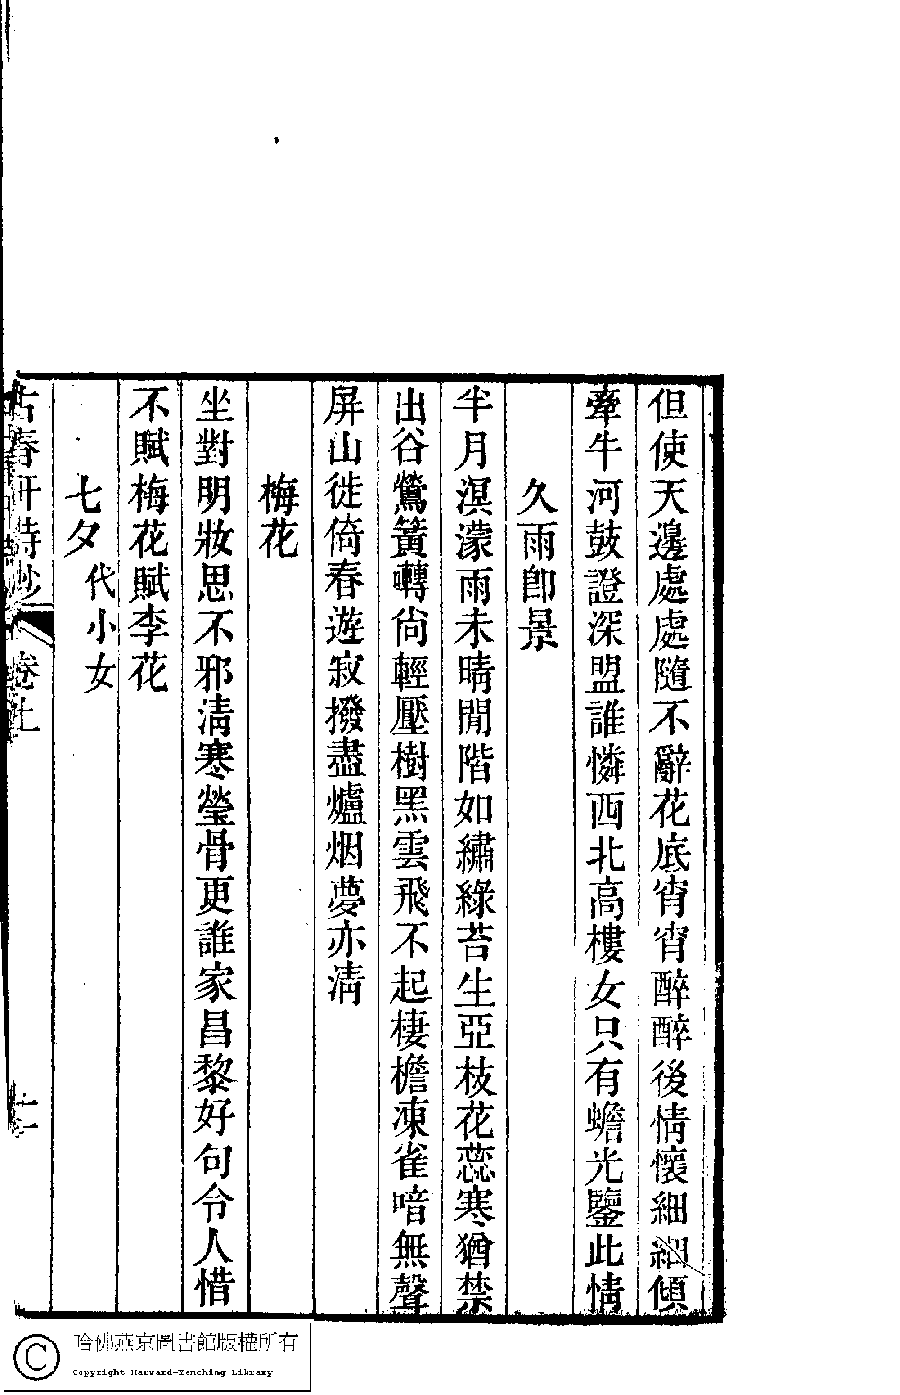 但使天邊處處隨不辭花底宵宵醉醉後情懷細細傾
牽牛河鼓證深盟誰憐西北高樓女只有蟾光鑒此情
久雨卽景
半月溟濛雨未晴閒階如繡綠苔生亞枝花蕊寒猶禁
出谷鶯簧囀尙輕壓樹黑雲飛不起棲檐凍雀喑無聲
屏山徙倚春遊寂撥盡爐烟夢亦淸
梅花
坐對明妝思不邪淸寒瑩骨更誰家昌黎好句令人惜
不賦梅花賦李花
七夕 代小女
古春軒詩鈔 卷上
哈佛燕京圖書館版權所有
Copyright Harvard-Yenching Library